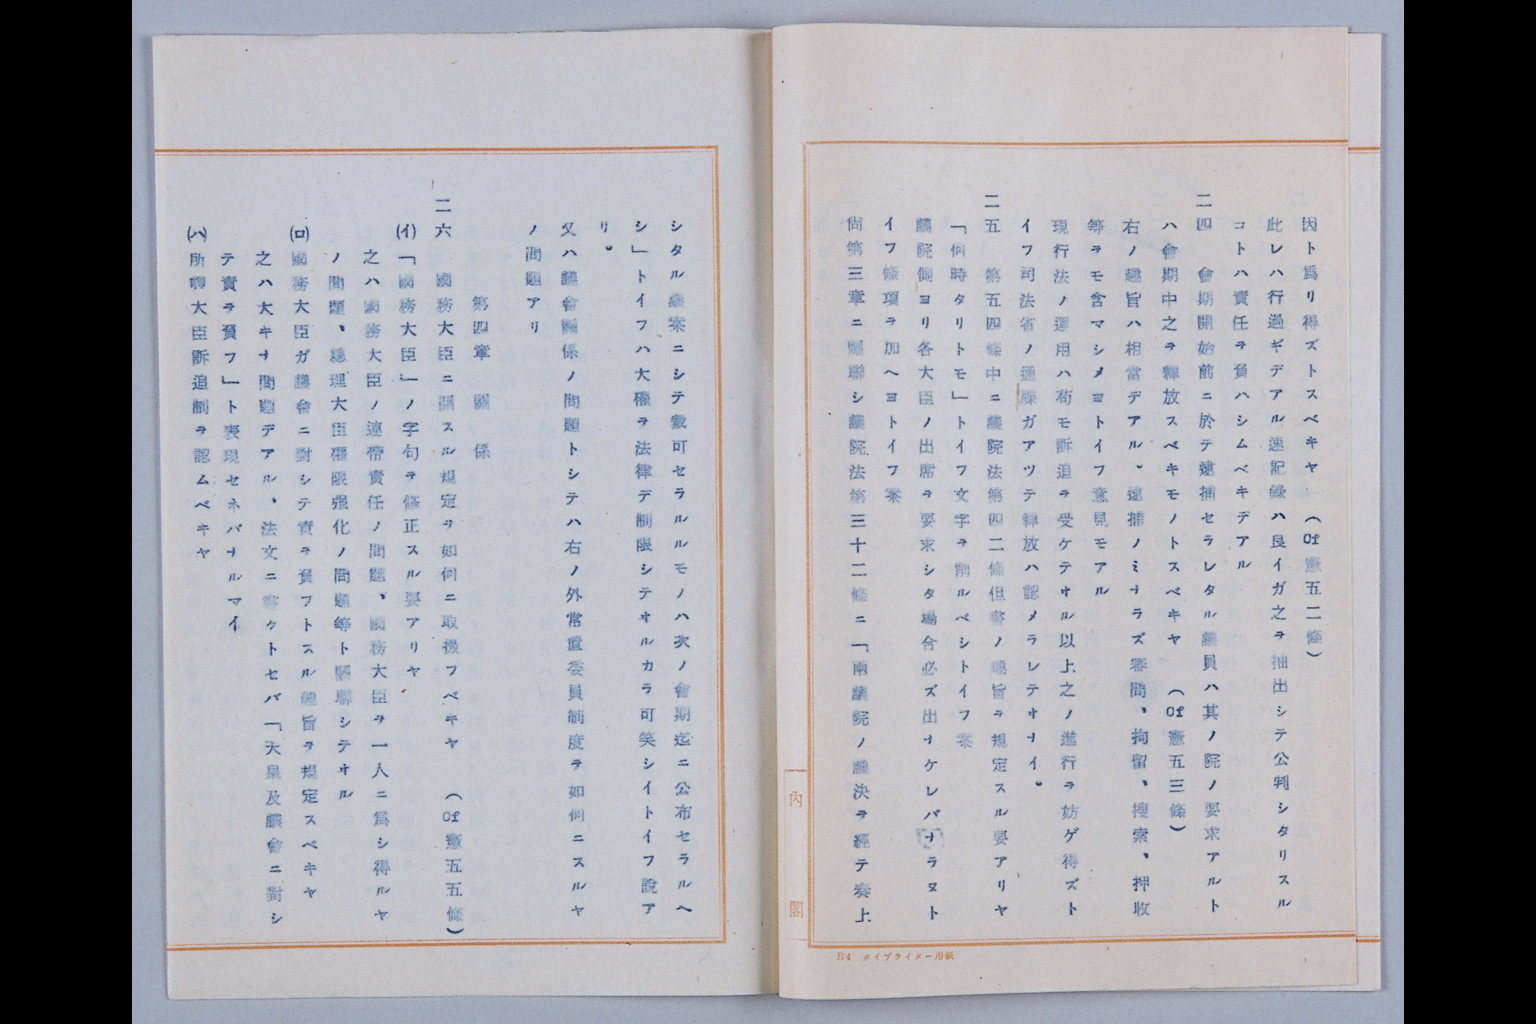 因ト爲リ得ズトスベキヤ (Of憲五二條)
此レハ行過ギデアル速記錄ハ良イガ之ヲ抽出シテ公判シタリスル
コトハ責任ヲ負ハシムベキデアル
二四 會期開始前ニ於テ逮捕セラレタル議員ハ其ノ院ノ要求アルト
ハ會期中之ヲ釋放スベキモノトスベキヤ (Of憲五三條)
右ノ趣旨ハ相當デアル、逮捕ノミナラズ審問、拘留、捜索、押收
等ヲモ含マシメヨトイフ意見モアル
現行法ノ運用ハ苟モ訴追ヲ受ケテオル以上之ノ進行ヲ妨ゲ得ズト
イフ司法省ノ通牒ガアツテ釋放ハ認メラレテオナイ。
二五 第五四條中ニ議院法第四二條但書ノ趣旨ヲ規定スル要アリヤ
「何時タリトモ」トイフ文字ヲ削ルベシトイフ案
議院側ヨリ各大臣ノ出席ヲ要求シタ場合必ズ出ナケレバナラヌト
イフ條項ヲ加ヘヨトイフ案
尚第三章ニ關聯シ議院法第三十二條ニ「兩議院ノ議決ヲ經テ奏上
内閣
B4 タイプライター用紙
シタル議案ニシテ裁可セラルルモノハ次ノ會期迄ニ公布セラルヘ
シ」トイフハ大權ヲ法律デ制限シテオルカラ可笑シイトイフ説ア
リ。
又ハ議會關係ノ問題トシテハ右ノ外常置委員制度ヲ如何ニスルヤ
ノ問題アリ
第四章 關係
二六 國務大臣ニ關スル規定ヲ如何ニ取扱フベキヤ (Of憲五五條)
(イ)「國務大臣」ノ字句ヲ修正スル要アリヤ
之ハ國務大臣ノ連帶責任ノ問題、國務大臣ヲ一人ニ爲シ得ルヤ
ノ問題、總理大臣權限强化ノ問題等ト關聯シテオル
(ロ)國務大臣ガ議會ニ對シテ責ヲ負フトスル趣旨ヲ規定スベキヤ
之ハ大キナ問題デアル、法文ニ書クトセバ「天皇及議會ニ對シ
テ責ヲ負フ」ト表現セネバナルマイ
(ハ)所謂大臣訴追制ヲ認ムベキヤ